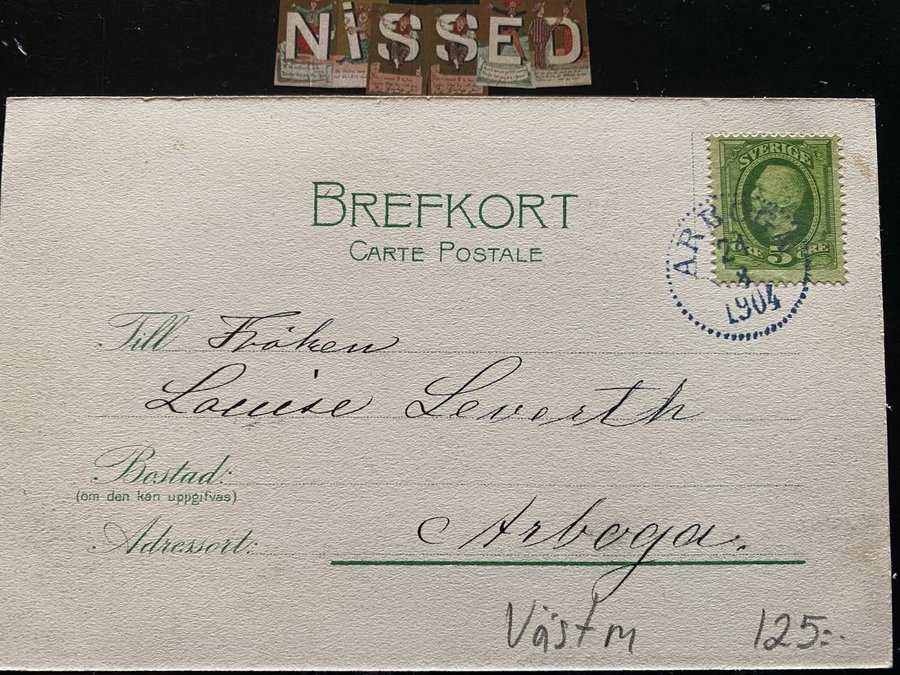 NISSED
BREFKORT
CARTE POSTALE
SVERIGE
5 ÖRE
ARBOGA
24
8
1904
Till Fröken
Louise Leverth
Bostad:
(om den kan uppgifvas)
Adressort:
Arboga.
Västm 125:-